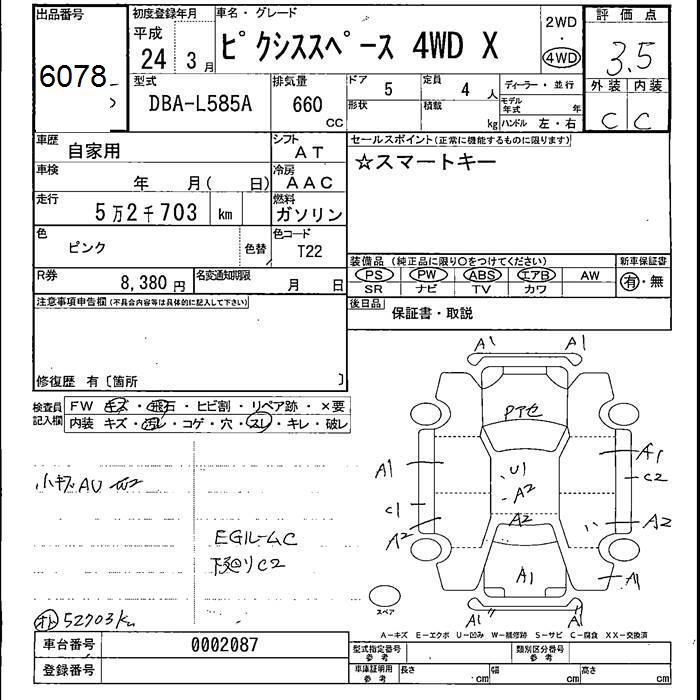 出品番号 初度登録年月 車名・グレード 評価点
6078 平成 24年 3月 ピクシススペース 4WD X 2WD・4WD 3.5
型式 排気量 ドア 5 定員 4人 ディーラー・並行 外装 内装
DBA-L585A 660cc 形状 積載 kg モデル年式 年 ハンドル 左・右 C C
車歴 自家用 シフト AT セールスポイント(正常に機能するものに限ります)
車検 年 月( 日) 冷房 AAC ☆スマートキー
走行 5万2千703 km 燃料 ガソリン
色 ピンク 色替 色コード T22
装備品(純正品に限り○をつけてください) 新車保証書
R券 8,380円 名変通知期限 月 日 PS PW ABS エアB AW 有・無
SR ナビ TV カワ
注意事項申告欄(不具合内容等は具体的に記入して下さい) 後日品 保証書・取説
修復歴 有〔箇所 〕
検査員記入欄 FW キズ・飛石・ヒビ割・リペア跡・×要
内装 キズ・汚レ・コゲ・穴・スレ・キレ・破レ
A1 A1
Pアセ
A1 U1 A1
A2 C2
小キズAU
C1 A2 A2
A2
EGルームC
下廻りC2
A1 A1
スペア
A1" A1"
オド 52703km
A-キズ E-エクボ U-凹み W-補修跡 S-サビ C-腐食 XX-交換済
車台番号 0002087 型式指定番号 参考 類別区分番号 参考
登録番号 車庫証明用 参考 長さ cm 幅 cm 高さ cm